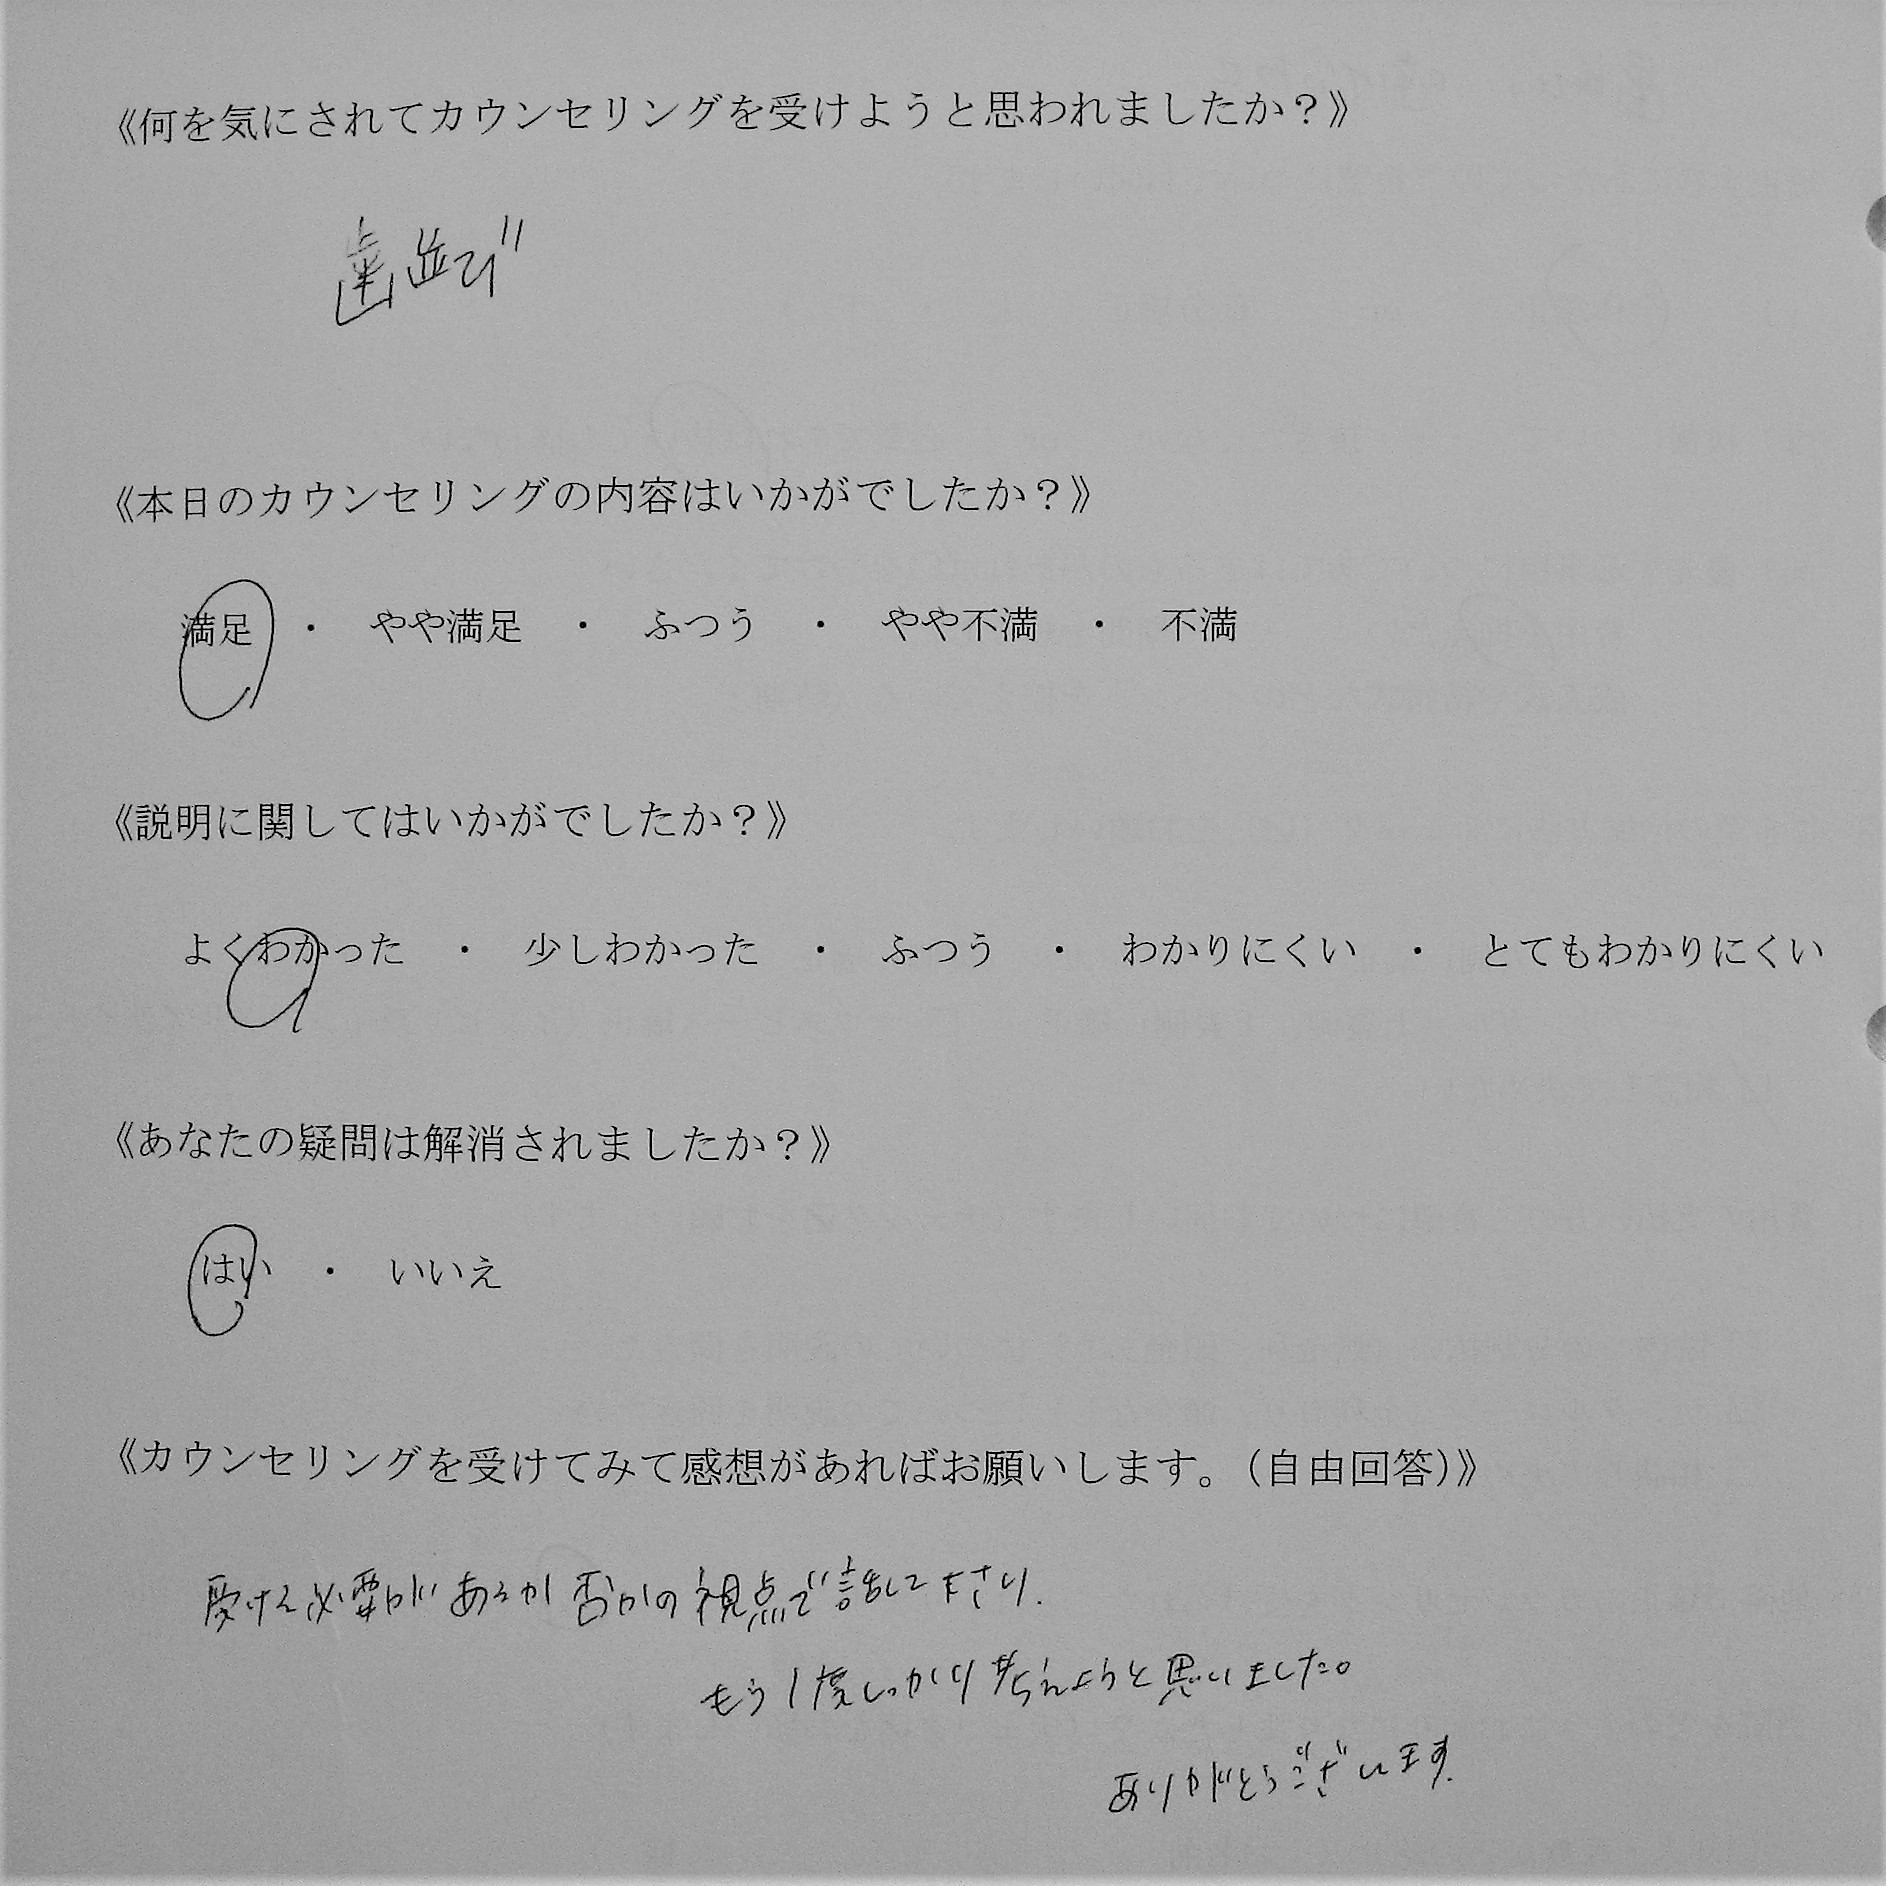 《何を気にされてカウンセリングを受けようと思われましたか？》
歯並び
《本日のカウンセリングの内容はいかがでしたか？》
満足 ・ やや満足 ・ ふつう ・ やや不満 ・ 不満
《説明に関してはいかがでしたか？》
よくわかった ・ 少しわかった ・ ふつう ・ わかりにくい ・ とてもわかりにくい
《あなたの疑問は解消されましたか？》
はい ・ いいえ
《カウンセリングを受けてみて感想があればお願いします。（自由回答）》
受ける必要があるか否かの視点で話して下さり.
もう1度しっかり考えようと思いました。
ありがとうございます.